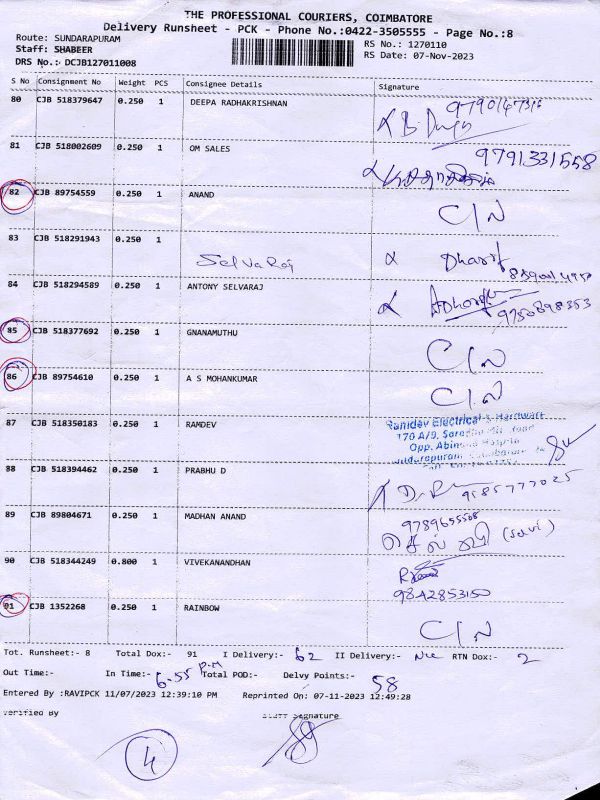 THE PROFESSIONAL COURIERS, COIMBATORE
Delivery Runsheet - PCK - Phone No.:0422-3505555 - Page No.:8
Route: SUNDARAPURAM
RS No.: 1270110
Staff: SHABEER
RS Date: 07-Nov-2023
DRS No.: DCJB127011008
S No Consignment No Weight PCS Consignee Details Signature
80 CJB 518379647 0.250 1 DEEPA RADHAKRISHNAN
81 CJB 518002609 0.250 1 OM SALES 9791331558
82 CJB 89754559 0.250 1 ANAND C/N
83 CJB 518291943 0.250 1 Selvaraj
84 CJB 518294589 0.250 1 ANTONY SELVARAJ 9750898353
85 CJB 518377692 0.250 1 GNANAMUTHU C/N
86 CJB 89754610 0.250 1 A S MOHANKUMAR C/N
87 CJB 518350183 0.250 1 RAMDEV
Ramdev Electrical & Hardware
170 A/9,
Opp.
88 CJB 518394462 0.250 1 PRABHU D 9585777025
89 CJB 89804671 0.250 1 MADHAN ANAND 9789655508
(Selvi)
90 CJB 518344249 0.800 1 VIVEKANANDHAN
9842853150
91 CJB 1352268 0.250 1 RAINBOW C/N
Tot. Runsheet:- 8 Total Dox:- 91 I Delivery:- 62 II Delivery:- Nil RTN Dox:- 2
Out Time:- In Time:- 6.55 P.M Total POD:- Delvy Points:- 58
Entered By :RAVIPCK 11/07/2023 12:39:10 PM Reprinted On: 07-11-2023 12:49:28
Verified By Staff Signature
4